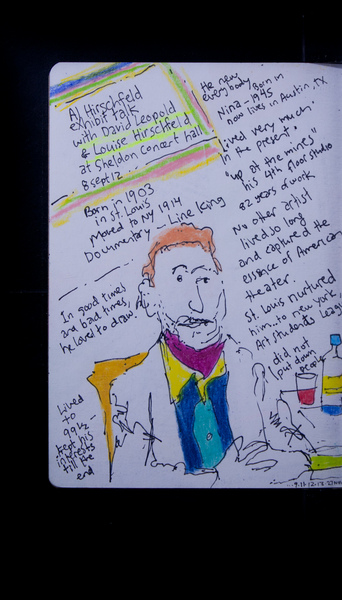 Al Hirschfeld
exhibit talk
with David Leopold
& Louise Hirschfeld
at Sheldon Concert hall
8 sept 12
Born in 1903
in St. Louis
Moved to NY 1914
Documentary - Line King
In good times
and bad times,
he loved to draw
Lived
to
99 1/2 -
kept his
interests
till the
end
He new
everybody
Nina - Born in
1945
now lives in Austin, TX
Lived very much
in the present.
"up at the mines"
his 4th floor studio
82 years of work
No other artist
lived so long
and captured the
essence of American
theater.
St. Louis nurtured
him... to new york,
Art students Leag
did not
put down
people